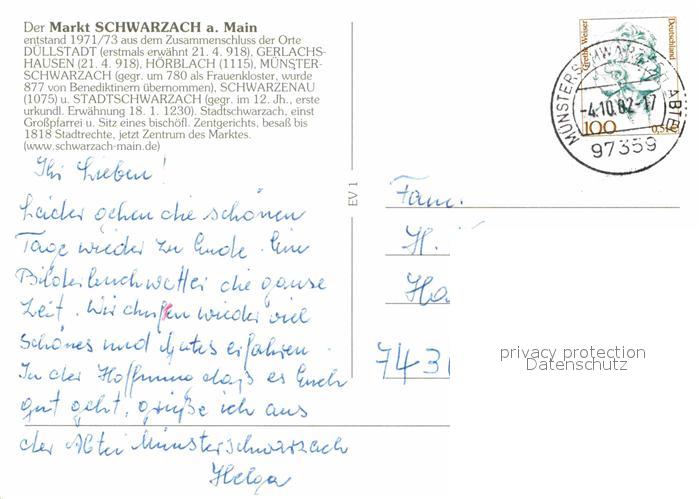 Der Markt SCHWARZACH a. Main
entstand 1971/73 aus dem Zusammenschluss der Orte
DÜLLSTADT (erstmals erwähnt 21. 4. 918), GERLACHS-
HAUSEN (21. 4. 918), HÖRBLACH (1115), MÜNSTER-
SCHWARZACH (gegr. um 780 als Frauenkloster, wurde
877 von Benediktinern übernommen), SCHWARZENAU
(1075) u. STADTSCHWARZACH (gegr. im 12. Jh., erste
urkundl. Erwähnung 18. 1. 1230). Stadtschwarzach, einst
Großpfarrei u. Sitz eines bischöfl. Zentgerichts, besaß bis
1818 Stadtrechte, jetzt Zentrum des Marktes.
(www.schwarzach-main.de)
Ihr Lieben!
Leider gehen die schönen
Tage wieder zu Ende. Ein
Bilderbuchwetter die ganze
Zeit. Wir durften wieder viel
Schönes und Gutes erfahren.
In der Hoffnung, daß es Euch
gut geht, grüße ich aus
der Abtei Münsterschwarzach
Helga
EV 1
Grethe Weiser
Deutschland
100
0,51 €
MÜNSTERSCHWARZACH ABTEI
-4.10.02-17
97359
Fam.
H.
Ha
7431
privacy protection
Datenschutz